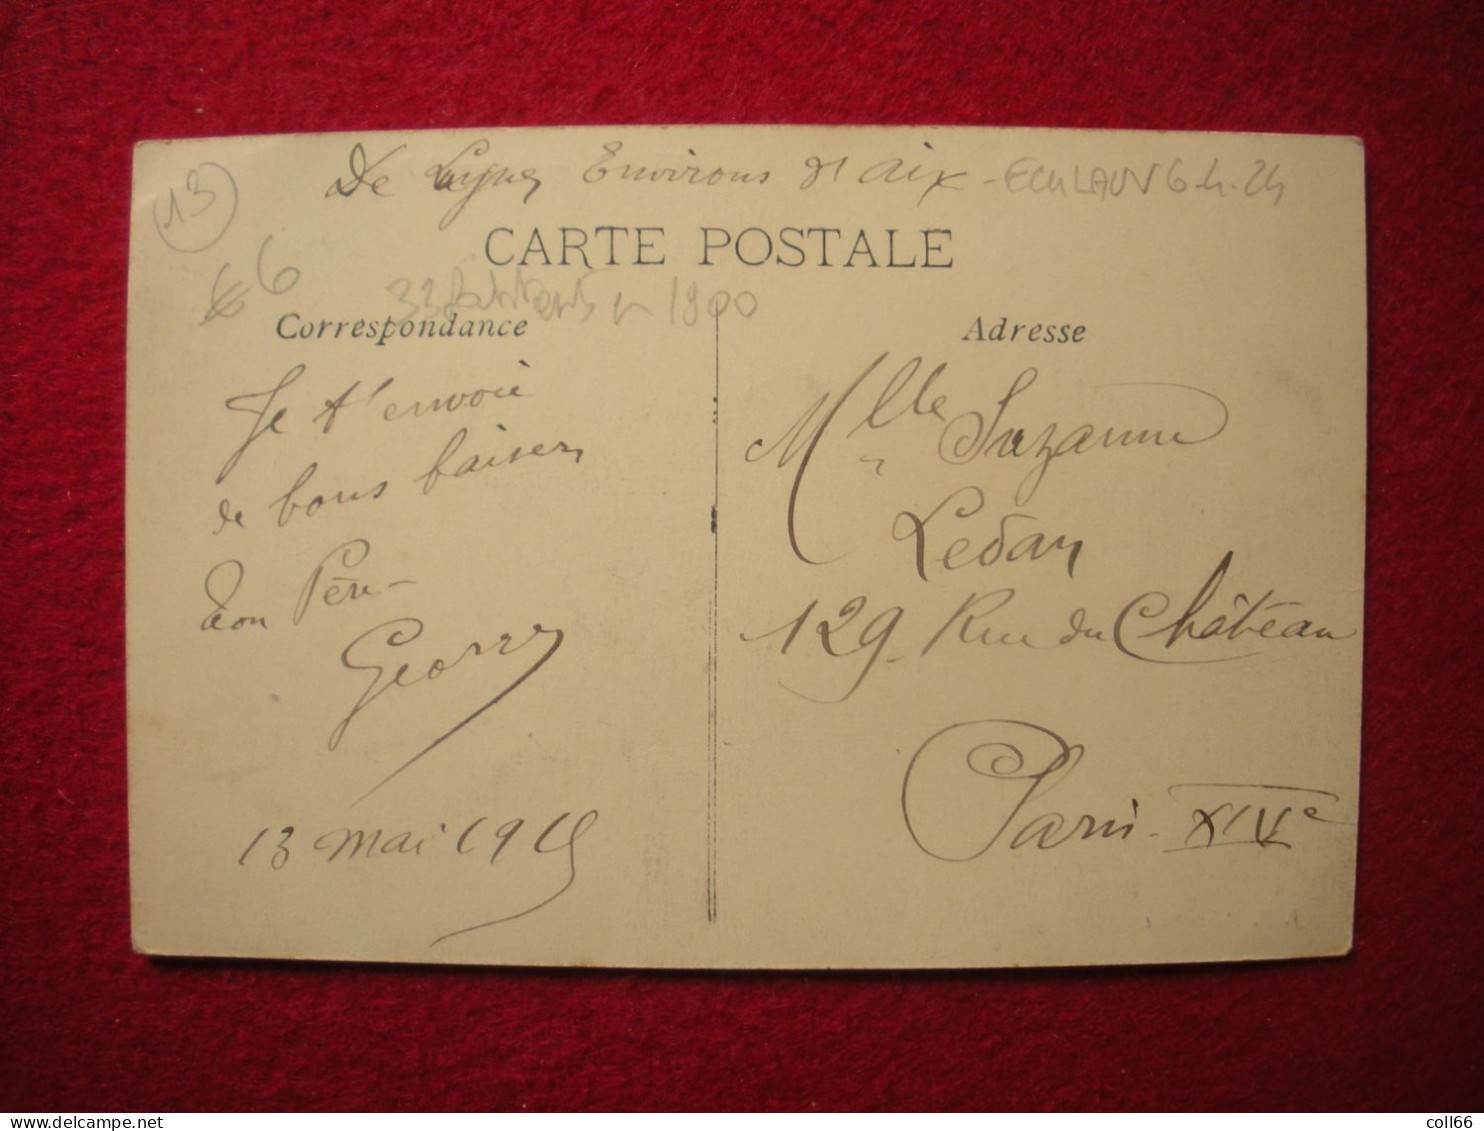 13
De Luynes Environs d'aix -
CARTE POSTALE
6
33 habitants en 1900
Correspondance
Je t'envoie
de bons baisers
Ton Père
Georges
13 mai 1915
Adresse
Mlle Suzanne
Ledan
129 Rue du Château
Paris - XIVe
coll66